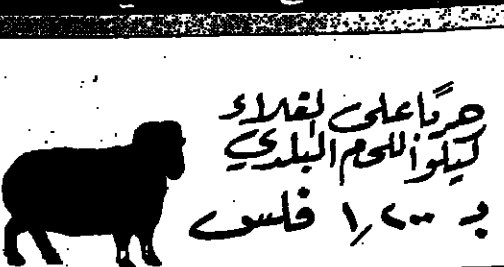 حربًا على لغلاء
كيلو اللحم البلدي
بـ ١,٢٠٠ فلس